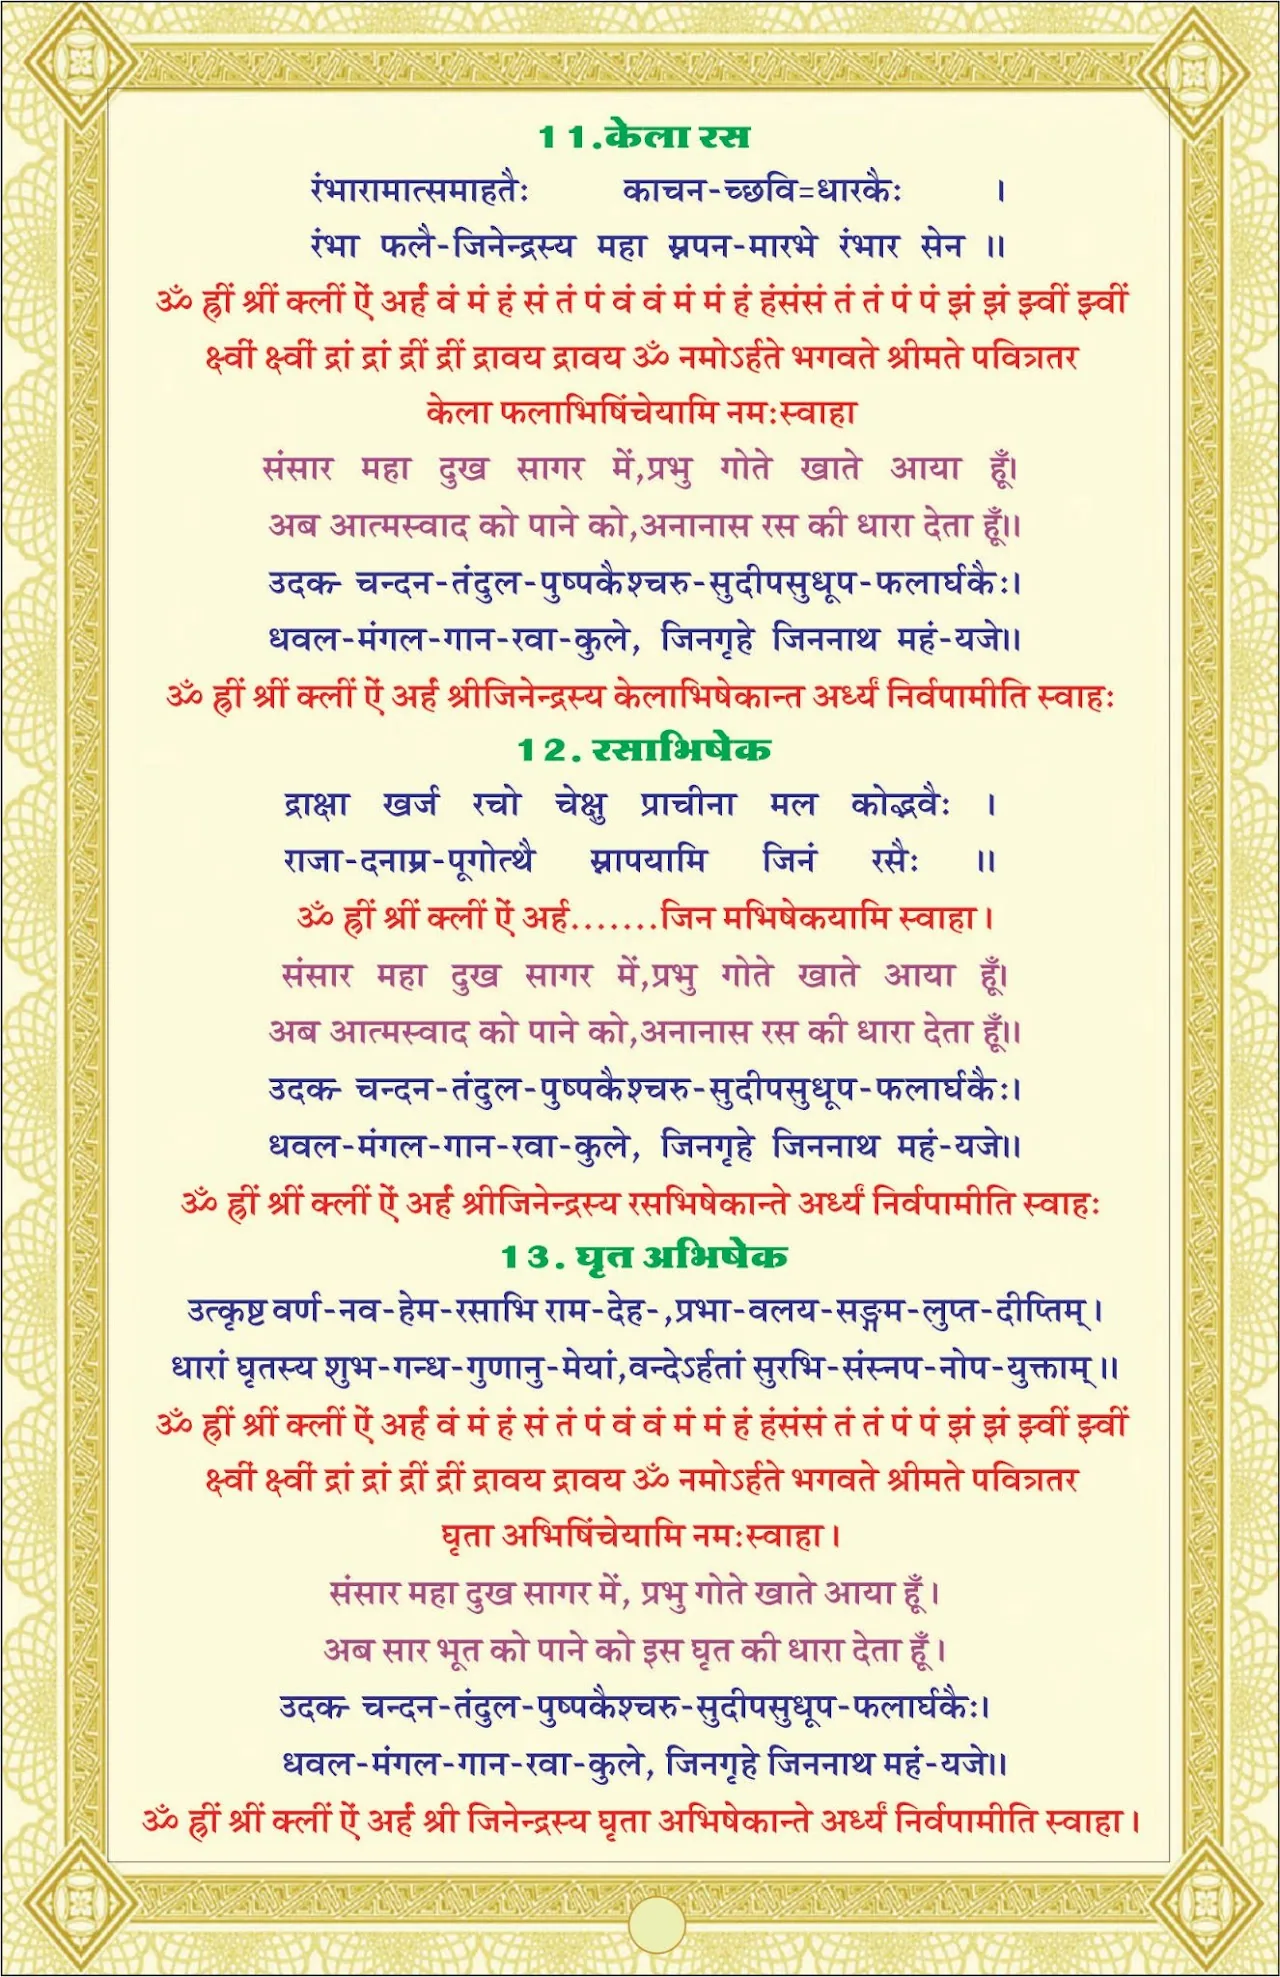 11.केला रस
रंभारामात्समाहतैः काचन-च्छवि=धारकैः ।
रंभा फलै-जिनेन्द्रस्य महा स्नपन-मारभे रंभार सेन ॥
ॐ ह्रीं श्रीं क्लीं ऐं अर्हं वं मं हं सं तं पं वं वं मं मं हं हंसंसं तं तं पं पं झं झं झ्वीं झ्वीं
क्ष्वीं क्ष्वीं द्रां द्रां द्रीं द्रीं द्रावय द्रावय ॐ नमोऽर्हते भगवते श्रीमते पवित्रतर
केला फलाभिषिंचेयामि नमःस्वाहा
संसार महा दुख सागर में,प्रभु गोते खाते आया हूँ।
अब आत्मस्वाद को पाने को,अनानास रस की धारा देता हूँ।।
उदक- चन्दन-तंदुल-पुष्पकैश्चरु-सुदीपसुधूप-फलार्घकैः।
धवल-मंगल-गान-रवा-कुले, जिनगृहे जिननाथ महं-यजे।।
ॐ ह्रीं श्रीं क्लीं ऐं अर्हं श्रीजिनेन्द्रस्य केलाभिषेकान्त अर्ध्यं निर्वपामीति स्वाहः
12. रसाभिषेक
द्राक्षा खर्ज रचो चेक्षु प्राचीना मल कोद्भवैः ।
राजा-दनाम्र-पूगोत्थै स्नापयामि जिनं रसैः ॥
ॐ ह्रीं श्रीं क्लीं ऐं अर्ह.......जिन मभिषेकयामि स्वाहा।
संसार महा दुख सागर में,प्रभु गोते खाते आया हूँ।
अब आत्मस्वाद को पाने को,अनानास रस की धारा देता हूँ।।
उदक- चन्दन-तंदुल-पुष्पकैश्चरु-सुदीपसुधूप-फलार्घकैः।
धवल-मंगल-गान-रवा-कुले, जिनगृहे जिननाथ महं-यजे।।
ॐ ह्रीं श्रीं क्लीं ऐं अर्हं श्रीजिनेन्द्रस्य रसभिषेकान्ते अर्ध्यं निर्वपामीति स्वाहः
13. घृत अभिषेक
उत्कृष्ट वर्ण-नव-हेम-रसाभि राम-देह-,प्रभा-वलय-सङ्गम-लुप्त-दीप्तिम्।
धारां घृतस्य शुभ-गन्ध-गुणानु-मेयां,वन्देऽर्हतां सुरभि-संस्नप-नोप-युक्ताम्॥
ॐ ह्रीं श्रीं क्लीं ऐं अर्हं वं मं हं सं तं पं वं वं मं मं हं हंसंसं तं तं पं पं झं झं झ्वीं झ्वीं
क्ष्वीं क्ष्वीं द्रां द्रां द्रीं द्रीं द्रावय द्रावय ॐ नमोऽर्हते भगवते श्रीमते पवित्रतर
घृता अभिषिंचेयामि नमःस्वाहा।
संसार महा दुख सागर में, प्रभु गोते खाते आया हूँ।
अब सार भूत को पाने को इस घृत की धारा देता हूँ।
उदक- चन्दन-तंदुल-पुष्पकैश्चरु-सुदीपसुधूप-फलार्घकैः।
धवल-मंगल-गान-रवा-कुले, जिनगृहे जिननाथ महं-यजे।।
ॐ ह्रीं श्रीं क्लीं ऐं अर्हं श्री जिनेन्द्रस्य घृता अभिषेकान्ते अर्ध्यं निर्वपामीति स्वाहा।